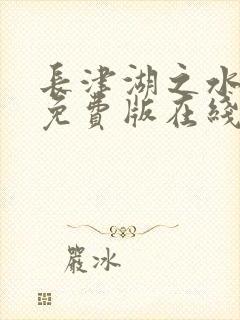 長津湖之水
免費版在綫
嚴冰